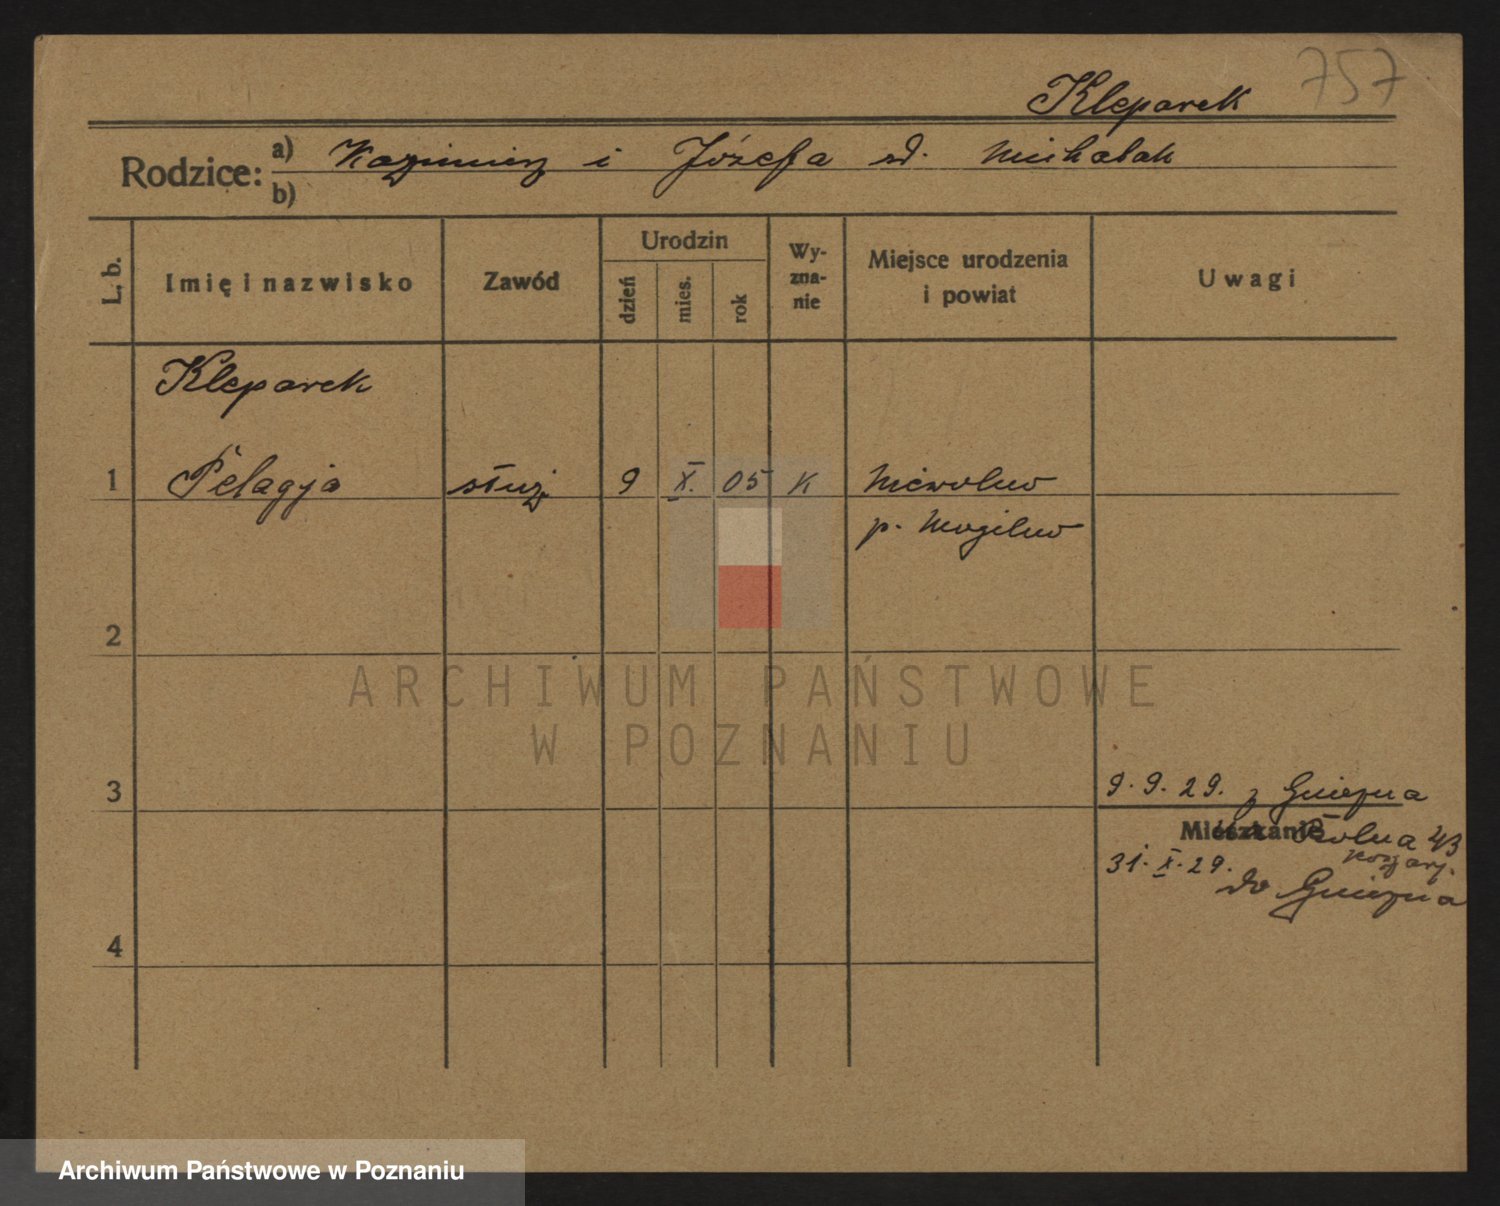 757
Kleparek
Rodzice: a) Kazimierz i Józefa zd. Michalak
b)
L. b. Imię i nazwisko Zawód Urodzin dzień mies. rok Wy-zna-nie Miejsce urodzenia i powiat Uwagi
Kleparek
1 Pelagja służ. 9 X. 05 K Niewolno
p. Mogilno
2
3
9.9.29. z Gniezna
Mieszkanie Rolna 43
31.X.29.
do Gniezna
4
ARCHIWUM PAŃSTWOWE
W POZNANIU
Archiwum Państwowe w Poznaniu